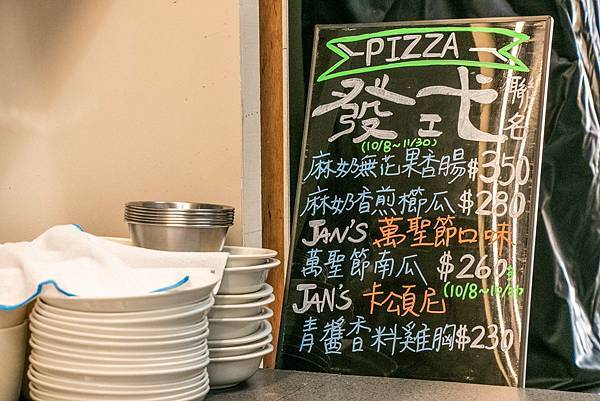 PIZZA
發弌聯名
(10/8~11/30)
麻奶無花果香腸$350
麻奶香煎櫛瓜$280
JAN'S 萬聖節口味
萬聖節南瓜 $260
JAN'S 卡頌尼 (10/8~10/31)
青醬香料雞胸$230